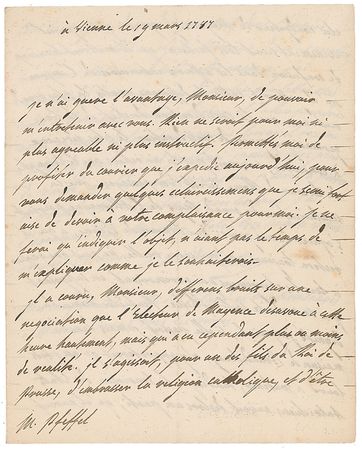 à Vienne le 19 mars 1787
je n'ai guere l'avantage, Monsieur, de pouvoir
m'entretenir avec vous. Rien ne seroit pour moi ni
plus agreable ni plus instructif. Permettés moi de
profiter du courier que j'expedie aujourd'hui, pour
vous demander quelques eclaircissemens que je serai fort
aise de devoir à votre complaisance pour moi. je ne
ferai qu'indiquer l'objet, n'aiant pas le temps de
m'expliquer comme je le souhaiterois.
il a couru, Monsieur, differens bruits sur une
negociation que l'Electeur de Mayence desavoue à cette
heure hautement, mais qui a eu cependant plus ou moins
de realité. il s'agissoit, pour un des fils du Roi de
Prusse, d'embrasser la religion catholique, et d'être
M. Pfeffel